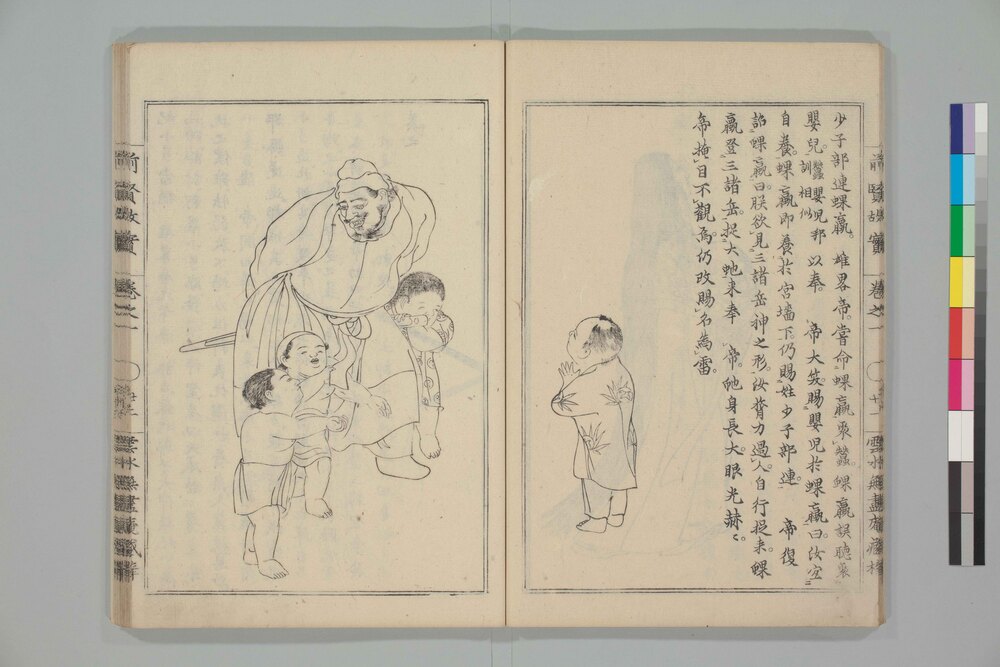 少子部連蜾蠃。雄畧帝。嘗命蜾蠃聚蠶。蜾蠃誤聽聚
嬰兒。蠶嬰児邦訓相似以奉。帝大笑賜嬰児於蜾蠃曰汝宜
自養。蜾蠃即養於宮墻下。仍賜姓少子部連。帝復
詔蜾蠃曰。朕欲見三諸岳神之形。汝膂力過人。自行捉来。蜾
蠃登三諸岳。捉大虵来奉。帝。虵身長大。眼光赫〻。
帝掩目不觀焉。仍改賜名為雷。
前賢故實
卷之一
前賢故實
卷之一